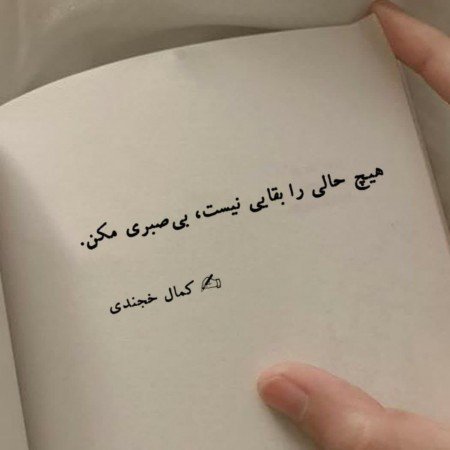 هیچ حالی را بقایی نیست، بی‌صبری مکن.
✍ کمال خجندی